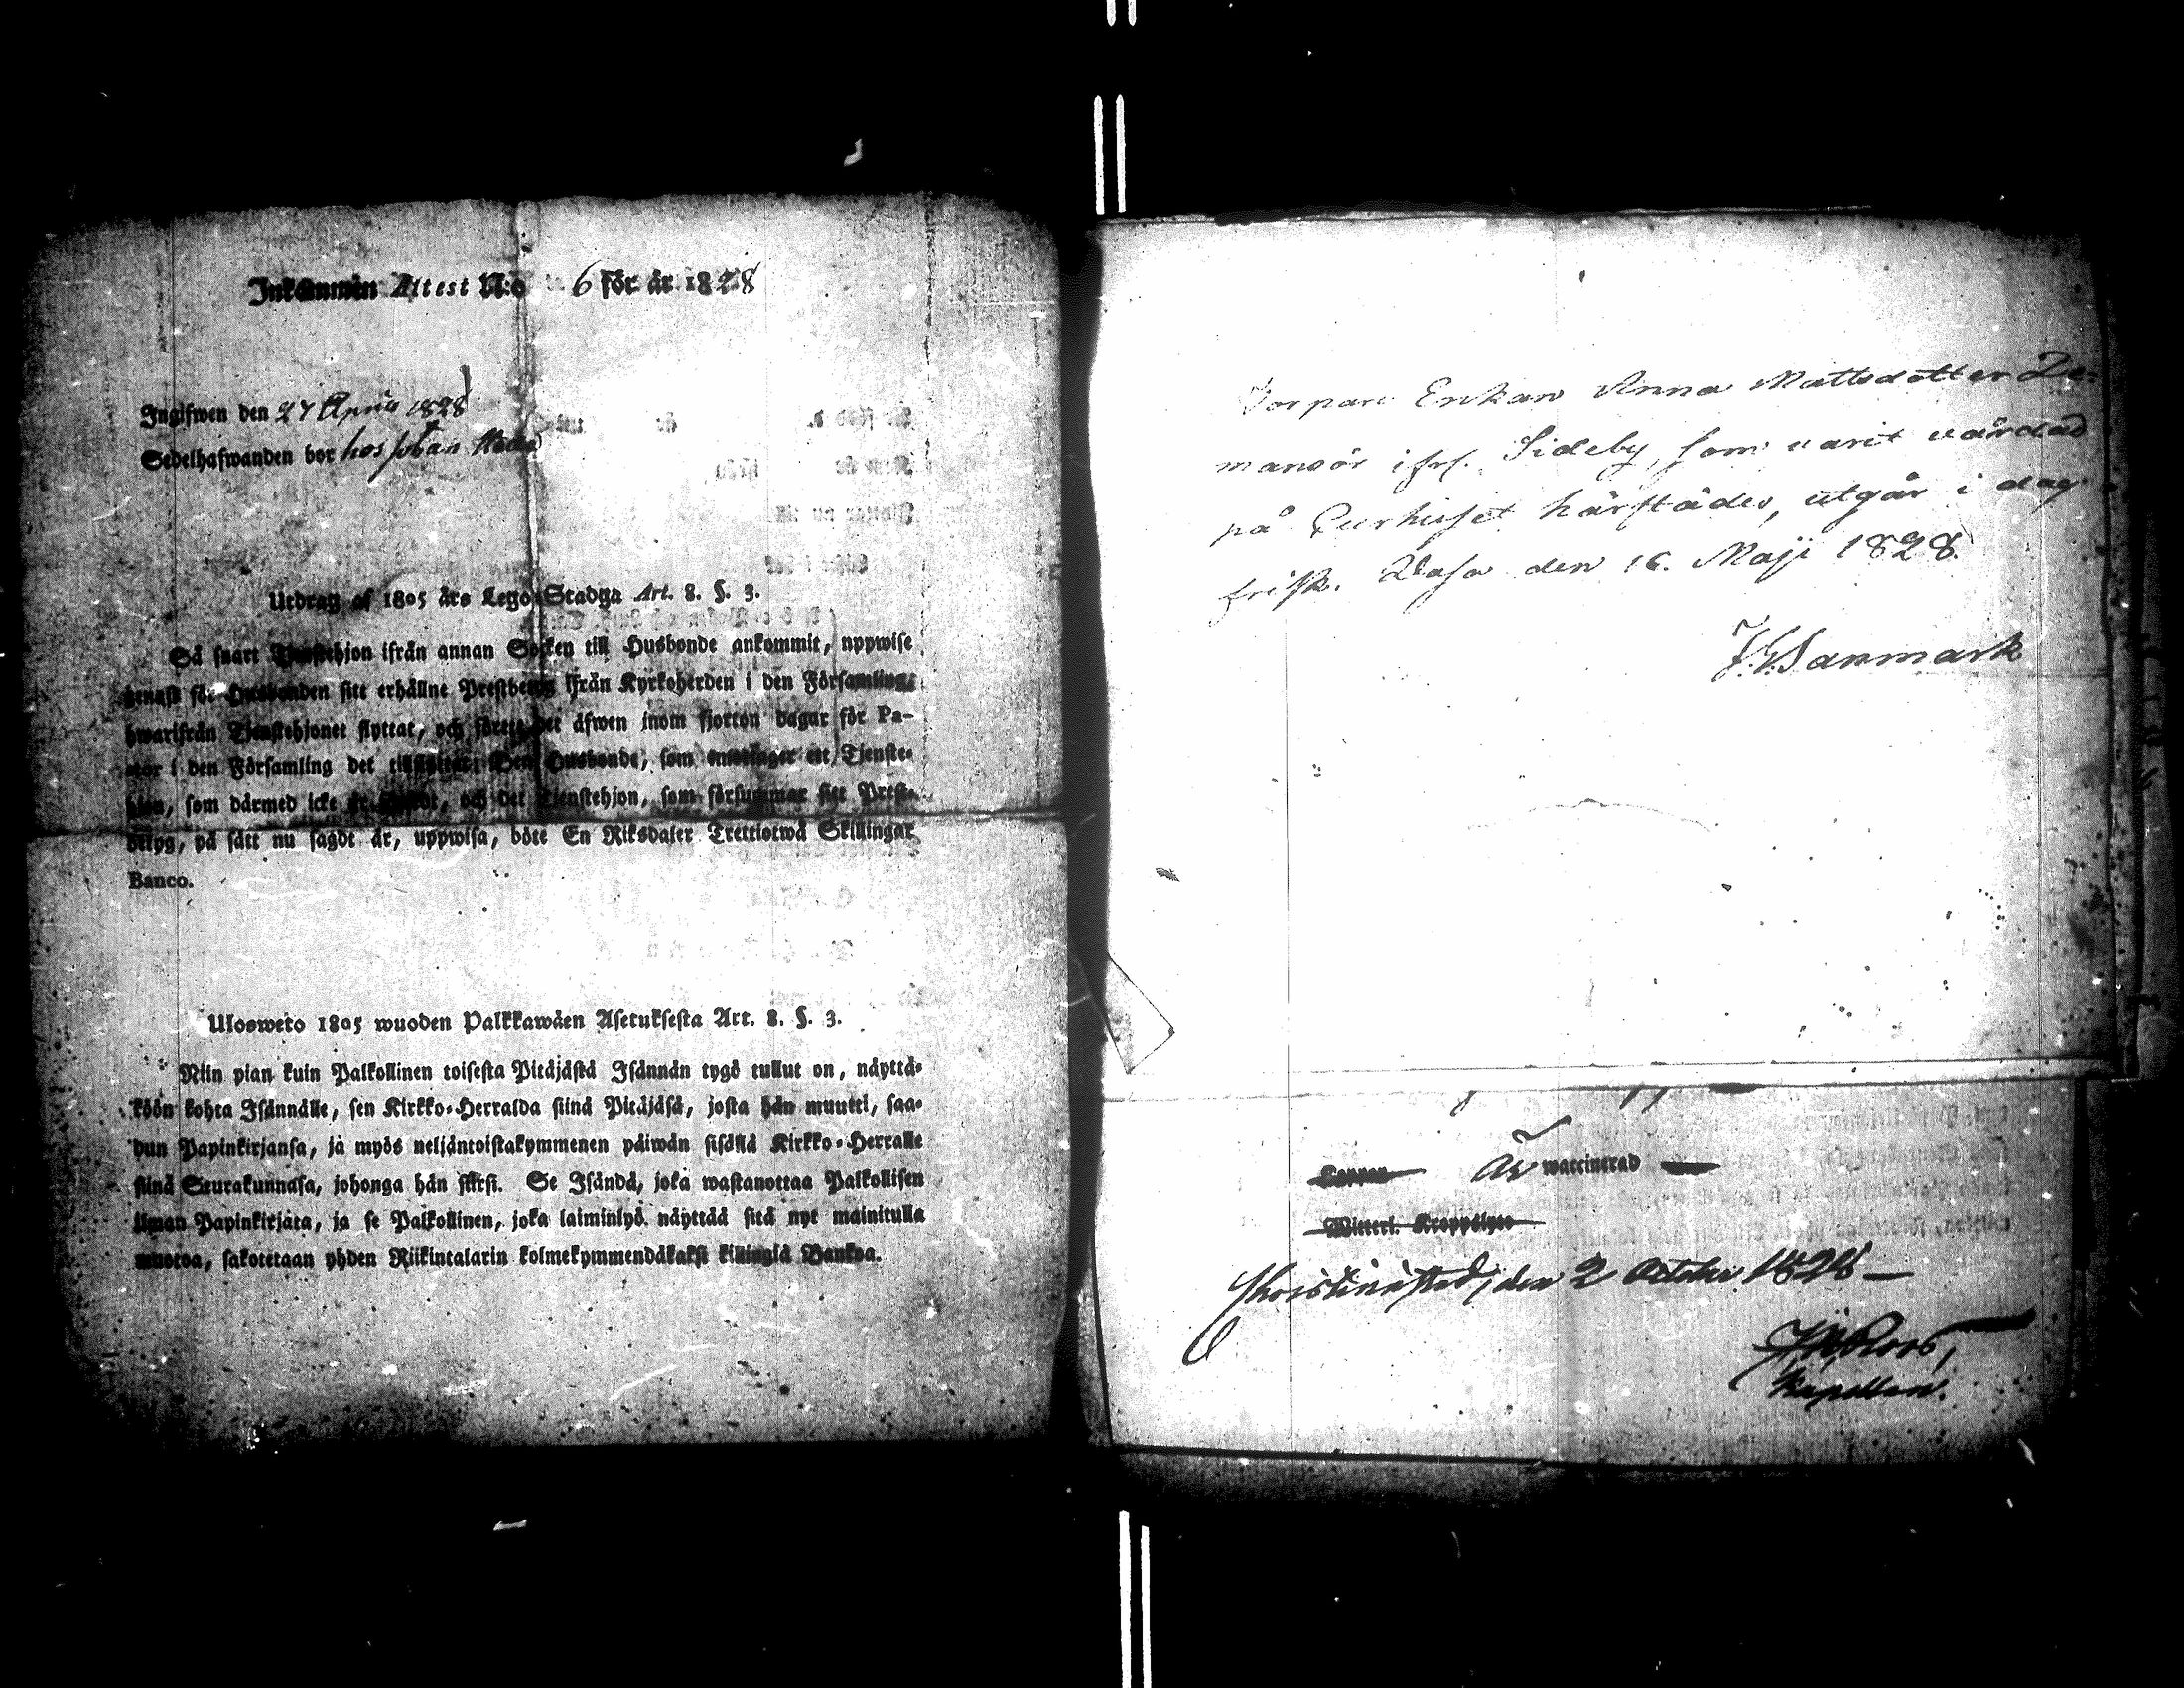 Inkommin Attest N:o 6 för år 1828
Ingifwen den 27 April 1828
Sedelhafwanden bor hos Johan
Utdrag af 1805 års Lego-Stadga Art. 8. §. 3.
Så snart Tjenstehjon ifrån annan Socken till Husbonde ankommit, uppwise
genast för Husbonden sitt erhållne Prestbetyg ifrån Kyrkoherden i den Församling,
hwarifrån Tjenstehjonet flyttat, och förete det äfwen inom fjorton dagar för Pa-
stor i den Församling det tillflyttar. Den Husbonde, som emottager ett Tjenste-
hjon, som därmed icke är, och det Tjenstehjon, som försummar sitt Prest-
betyg, på sätt nu sagdt är, uppwisa, böte En Riksdaler Trettiotwå Skillingar
Banco.
Ulosweto 1805 wuoden Palkkawäen Asetuksesta Art. 8. §. 3.
Niin pian kuin Palkollinen toisesta Pitäjästä Isännän tygö tullut on, näyttä-
köön kohta Isännälle, sen Kirkko-Herralda siinä Pitäjäsä, josta hän muutti, saa-
dun Papinkirjansa, ja myös neljäntoistakymmenen päiwän sisällä Kirkko-Herralle
siinä Seurakunnasa, johonga hän siirsi. Se Isändä, joka wastanottaa Palkollisen
ilman Papinkirjata, ja se Palkollinen, joka laiminlyö näyttää sitä nyt mainitulla
muotoa, sakotetaan yhden Riikintalarin kolmekymmendäkaksi killingiä Bankoa.
Torpare Enkan Anna Mattsdotter De-
mansör ifrf. Sideby, som varit vårdad
på Curhuset härstädes, utgår i dag
frisk. Vasa den 16. Maji 1828.
Sanmark
Koppor Är waccinerad
Witterl. Kroppslyte
Christinæstad, den 2 October 1828
Roos,
Kapellan.